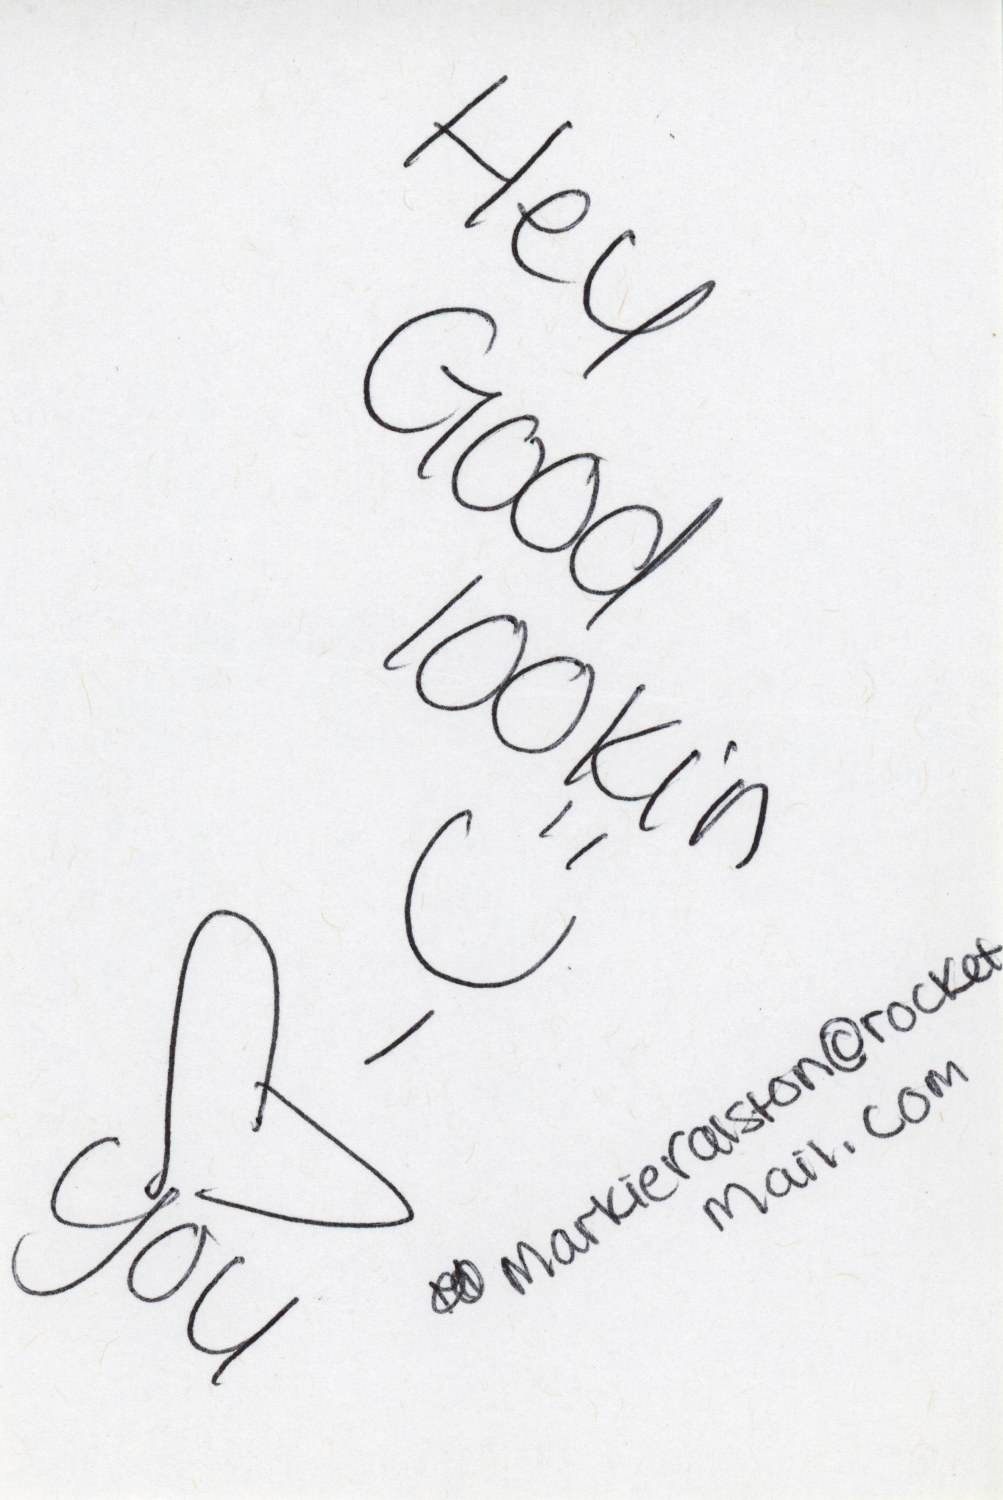 Hey
Good
lookin
I
you
markieralston@rocket
mail.com